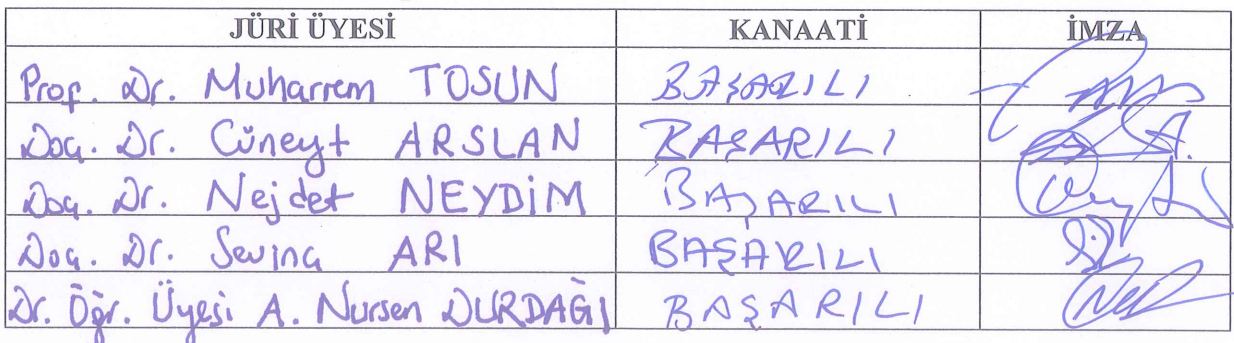 JÜRİ ÜYESİ KANAATİ İMZA
Prof. Dr. Muharrem TOSUN BAŞARILI
Doç. Dr. Cüneyt ARSLAN BAŞARILI
Doç. Dr. Nejdet NEYDİM BAŞARILI
Doç. Dr. Sevinç ARI BAŞARILI
Dr. Öğr. Üyesi A. Nursen DURDAĞI BAŞARILI